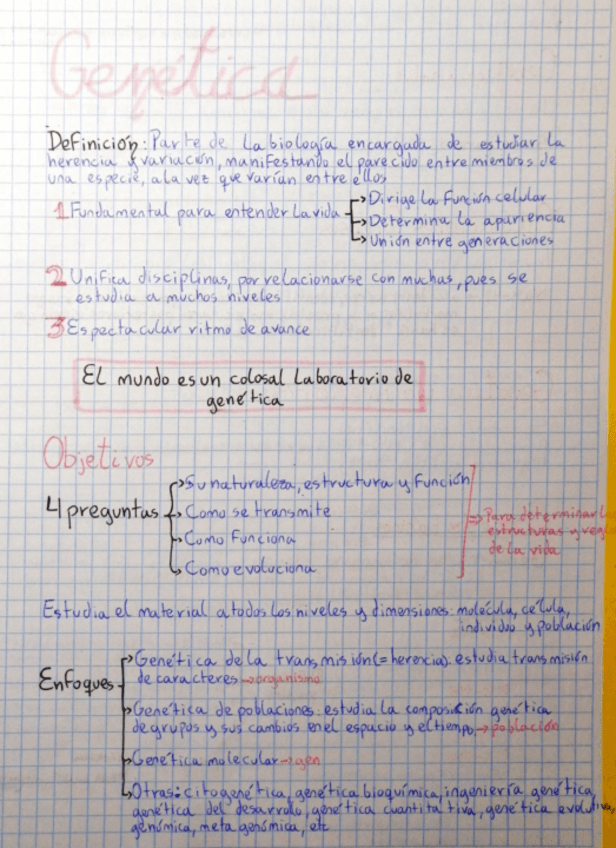 Genética
Definición: Parte de la biología encargada de estudiar la
herencia y variación, manifestando el parecido entre miembros de
una especie, a la vez que varían entre ellos
1 Fundamental para entender la vida
→ Dirige la función celular
→ Determina la apariencia
→ Unión entre generaciones
2 Unifica disciplinas, por relacionarse con muchas, pues se
estudia a muchos niveles
3 Espectacular ritmo de avance
El mundo es un colosal laboratorio de
genética
Objetivos
4 preguntas
→ Su naturaleza, estructura y función
→ Como se transmite
→ Como funciona
→ Como evoluciona
⇒ Para determinar
estructuras y
de la vida
Estudia el material a todos los niveles y dimensiones: molécula, célula,
individuo y población
Enfoques
→ Genética de la transmisión (= herencia). estudia transmisión
de caracteres → organismo
→ Genética de poblaciones: estudia la composición genética
de grupos y sus cambios en el espacio y el tiempo. → población
→ Genética molecular → gen
→ Otras: citogenética, genética bioquímica, ingeniería genética,
genética del desarrollo, genética cuantitativa, genética evolutiva,
genómica, meta genómica, etc